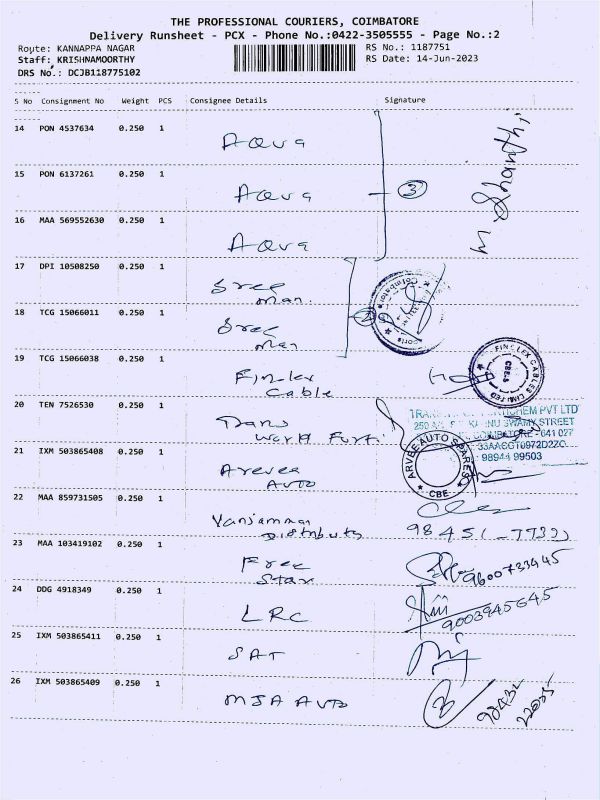 THE PROFESSIONAL COURIERS, COIMBATORE
Delivery Runsheet - PCX - Phone No.:0422-3505555 - Page No.:2
Route: KANNAPPA NAGAR
RS No.: 1187751
Staff: KRISHNAMOORTHY
RS Date: 14-Jun-2023
DRS No.: DCJB118775102
S No Consignment No Weight PCS Consignee Details Signature
14 PON 4537634 0.250 1
Aqua
15 PON 6137261 0.250 1
Aqua
3
16 MAA 569552630 0.250 1
Aqua
17 DPI 10508250 0.250 1
Sree
Man.
18 TCG 15066011 0.250 1
Sree
Man
2
19 TCG 15066038 0.250 1
Finlex
Cable
FINOLEX CABLES LIMITED
CBE-5
20 TEN 7526530 0.250 1
Trans
World
CHEM PVT LTD
SWAMY STREET
COIMBATORE - 641 027
21 IXM 503865408 0.250 1
98944 99503
Arevee
Auto
ARVEE AUTO SPARES
CBE
22 MAA 859731505 0.250 1
23 MAA 103419102 0.250 1
Free
Star
9600733445
24 DDG 4918349 0.250 1
LRC
9003945645
25 IXM 503865411 0.250 1
SAT
26 IXM 503865409 0.250 1
MSA AUTO
98432
22005